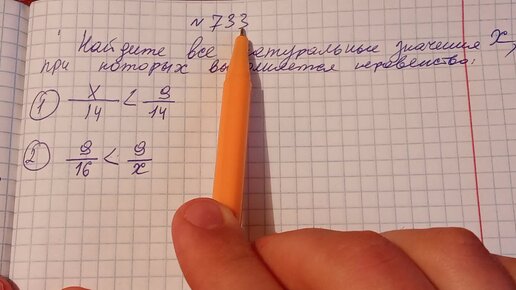 № 733
Найдите все натуральные значения x,
при которых выполняется неравенство:
1) x/14 < 9/14
2) 9/16 < 9/x